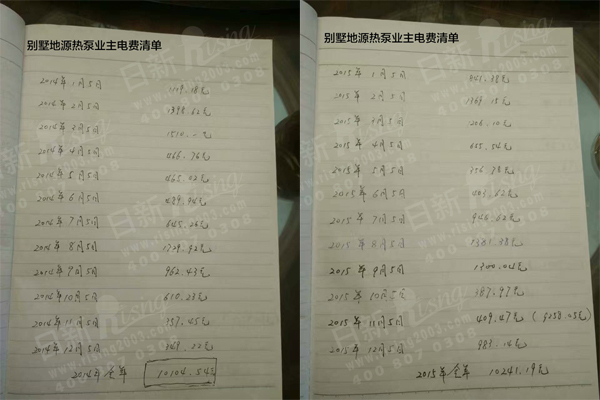 别墅地源热泵业主电费清单
2014年1月5日
2014年2月5日 1398.62元
2014年3月5日
2014年4月5日 466.76元
2014年5月5日 465.02元
2014年6月5日 489.94元
2014年7月5日 645.26元
2014年8月5日 1729.42元
2014年9月5日 962.43元
2014年10月5日 610.23元
2014年11月5日 357.45元
2014年12月5日
2014年全年 10104.54元
别墅地源热泵业主电费清单
2015年1月5日
2015年2月5日 1369.15元
2015年3月5日 206.10元
2015年4月5日 655.54元
2015年5月5日
2015年6月5日
2015年7月5日 946.62元
2015年8月5日 1381.38元
2015年9月5日 1300.04元
2015年10月5日
2015年11月5日 409.47元
2015年12月5日 983.14元
2015年全年 10241.19元
日新
400 0308